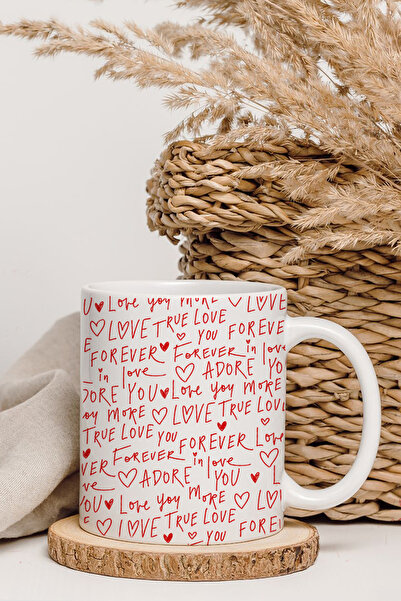 U ♥ Love you MORE ♡ LOVE
♡ LOVE TRUE LOVE YOU FOREVER
FOREVER ♥ Forever in love
in love ♡ ADORE YOU
DORE YOU ♥ Love you MORE
ou MORE ♡ LOVE TRUE LOVE
TRUE LOVE YOU FOREVER Love
♥ FOREVER Forever in love ♡
♡ ADORE YOU ♥
YOU ♥ Love you MORE ♡ LOVE
♡ LOVE TRUE LOVE ♥ YOU FOREVER